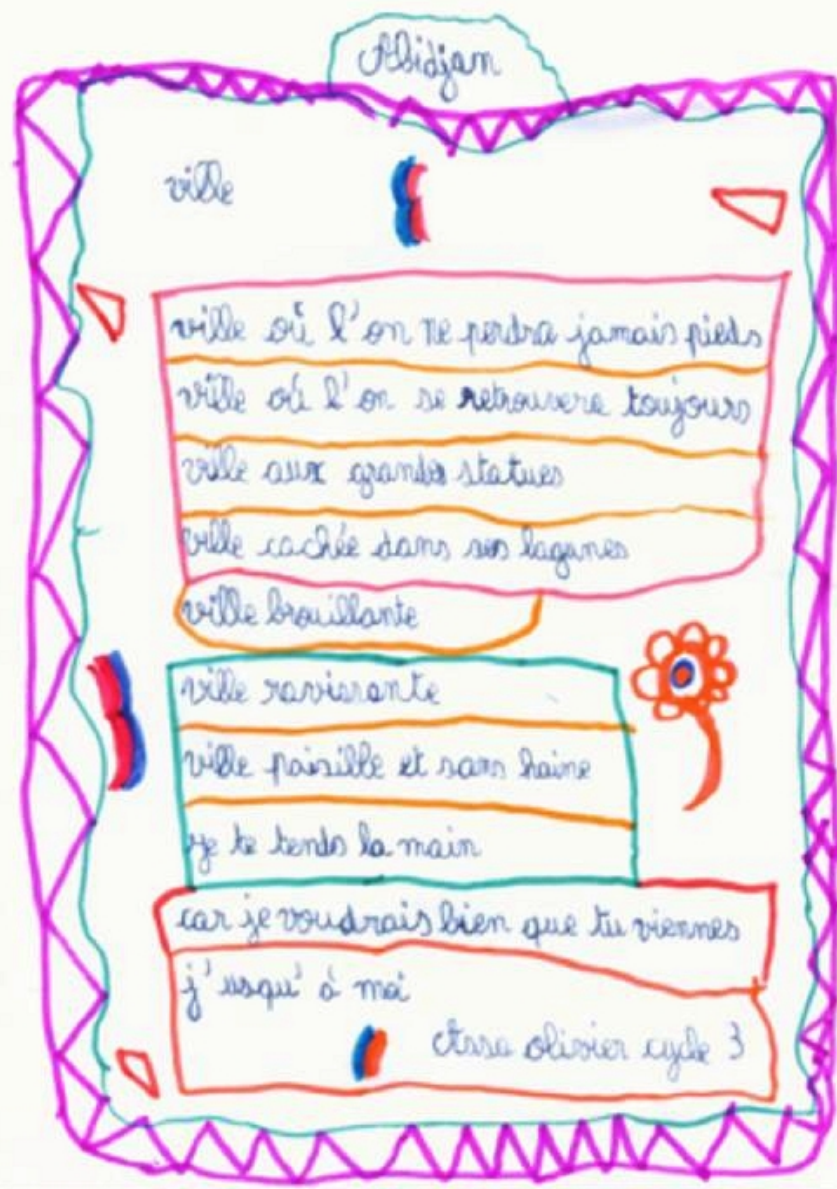 Abidjan
ville
ville où l'on ne perdra jamais pieds
ville où l'on se retrouvera toujours
ville aux grandes statues
ville cachée dans ses lagunes
ville brouillante
ville ravissante
ville paisible et sans haine
je te tends la main
car je voudrais bien que tu viennes
j'usqu'à moi
olivier cycle 3